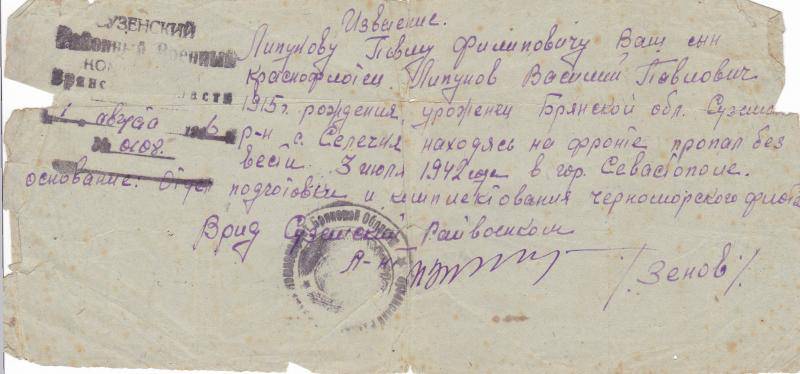 Извещение.
СУЗЕМСКИЙ
Районный Военный
КОМ
Брянс области
августа
№ 0108.
Липунову Павлу Филиповичу Ваш сын
Краснофлотец Липунов Василий Павлович
1915 г. рождения, уроженец Брянской обл. Суземс
р-н с. Селечня находясь на фронте пропал без
вести 3 июля 1942 года в гор. Севастополе.
основание: Отдел подготовки и комплектования черноморского флота
Врид Суземский Райвоенком
/Зенов/